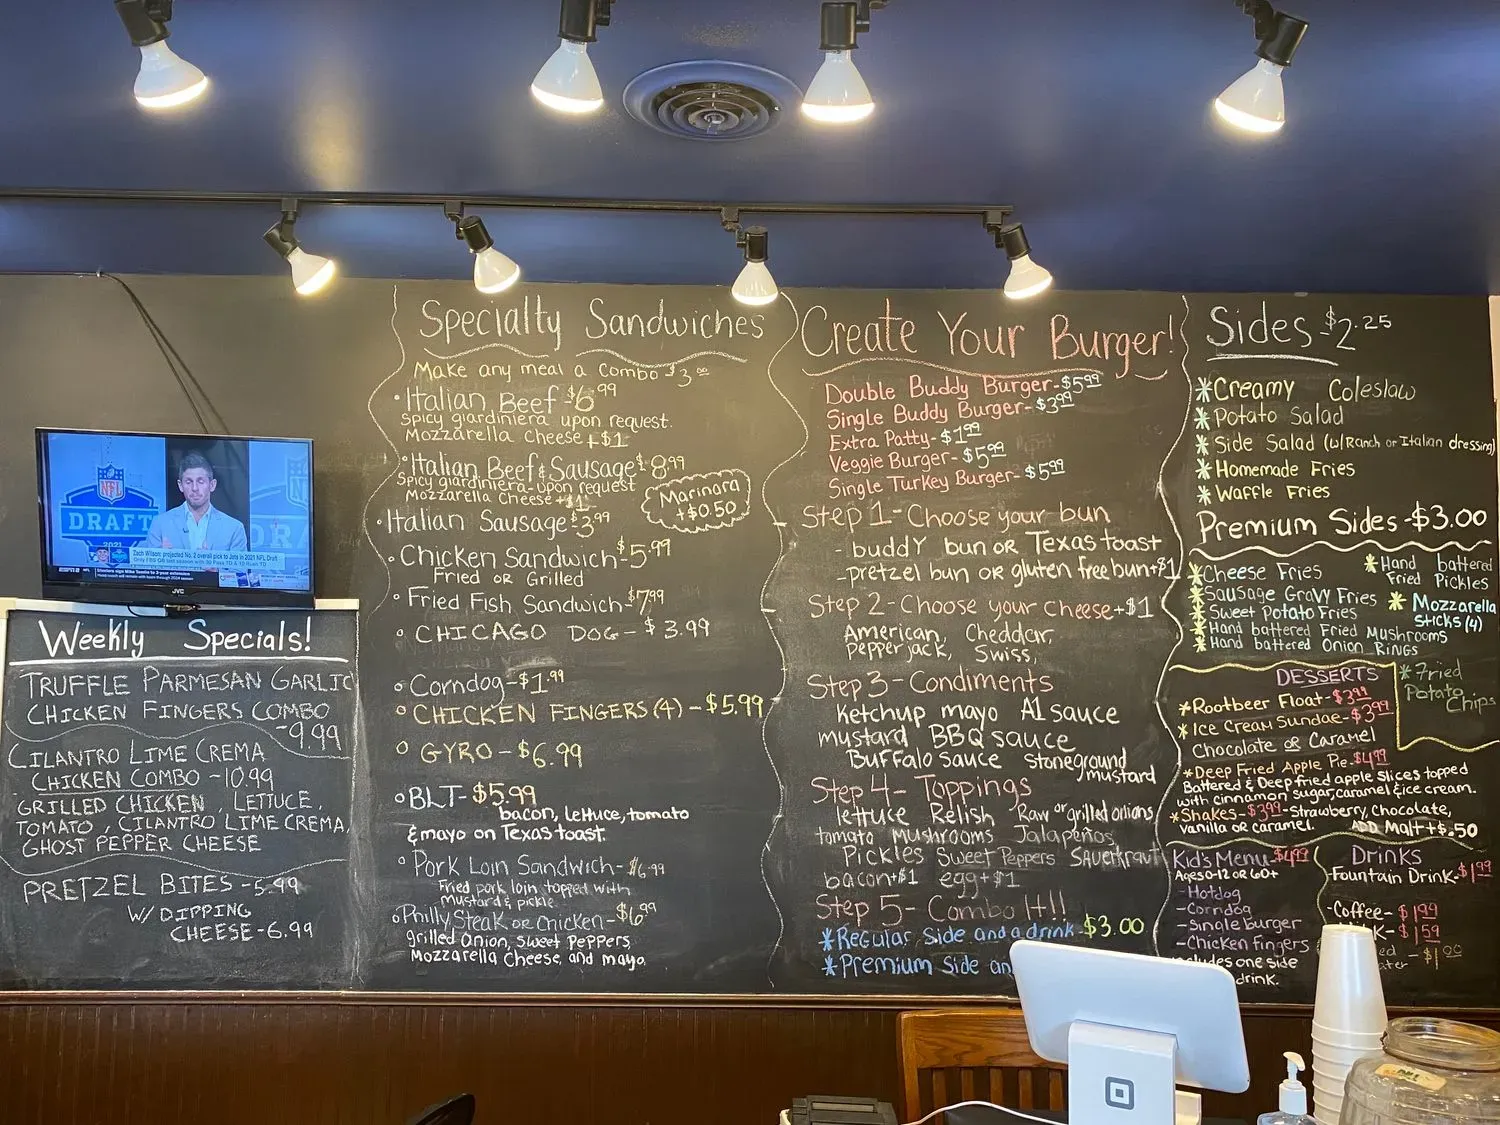 NFL
DRAFT
2021
Zach Wilson: projected No. 2 overall pick to Jets in 2021 NFL Draft
JVC
Weekly Specials!
TRUFFLE PARMESAN GARLIC
CHICKEN FINGERS COMBO
-9.99
CILANTRO LIME CREMA
CHICKEN COMBO -10.99
GRILLED CHICKEN, LETTUCE,
TOMATO, CILANTRO LIME CREMA,
GHOST PEPPER CHEESE
PRETZEL BITES -5.99
W/ DIPPING
CHEESE -6.99
Specialty Sandwiches
Make any meal a combo $3.00
Italian Beef $6.99
Spicy giardiniera upon request.
Mozzarella Cheese +$1
Italian Beef & Sausage $8.99
Spicy giardiniera-upon request
Mozzarella Cheese +$1
Marinara
+$0.50
Italian Sausage $3.99
Chicken Sandwich-$5.99
Fried or Grilled
Fried Fish Sandwich-$7.99
CHICAGO DOG - $3.99
Corndog-$1.99
CHICKEN FINGERS (4) - $5.99
GYRO - $6.99
BLT- $5.99
bacon, lettuce, tomato
& mayo on Texas toast.
Pork Loin Sandwich- $6.99
Fried pork loin topped with
mustard & pickle
Philly Steak or Chicken- $6.99
grilled onion, sweet peppers,
Mozzarella Cheese, and mayo.
Create Your Burger!
Double Buddy Burger-$5.99
Single Buddy Burger-$3.99
Extra Patty-$1.99
Veggie Burger-$5.99
Single Turkey Burger-$5.99
Step 1-Choose your bun
-buddy bun or Texas toast
-pretzel bun or gluten free bun+$1
Step 2-Choose your cheese+$1
American, Cheddar,
Pepperjack, Swiss,
Step 3-Condiments
ketchup mayo A1 sauce
mustard BBQ sauce
Buffalo sauce stoneground
mustard
Step 4-Toppings
lettuce Relish Raw or grilled onions
tomato Mushrooms Jalapeños
Pickles Sweet Peppers Sauerkraut
bacon+$1 egg+$1
Step 5- Combo It!!
*Regular Side and a drink-$3.00
*Premium Side an
Sides-$2.25
*Creamy Coleslaw
*Potato Salad
*Side Salad (w/Ranch or Italian dressing)
*Homemade Fries
*Waffle Fries
Premium Sides-$3.00
*Cheese Fries
*Sausage Gravy Fries
*Sweet Potato Fries
*Hand battered Fried Mushrooms
*Hand battered Onion Rings
*Hand battered
Fried Pickles
*Mozzarella
Sticks (4)
*Fried
Potato
Chips
DESSERTS
*Rootbeer Float-$3.99
*Ice Cream Sundae-$3.99
Chocolate or Caramel
*Deep Fried Apple Pie-$4.99
Battered & Deep fried apple slices topped
with cinnamon sugar, caramel & ice cream.
*Shakes-$3.99-Strawberry, chocolate,
vanilla or caramel. ADD Malt+$.50
Kid's Menu-$4.99
Ages 0-12 or 60+
-Hotdog
-Corndog
-Single burger
-Chicken fingers
cludes one side
drink.
Drinks
Fountain Drink-$1.99
-Coffee-$1.99
K-$1.59
ed
ater -$1.00